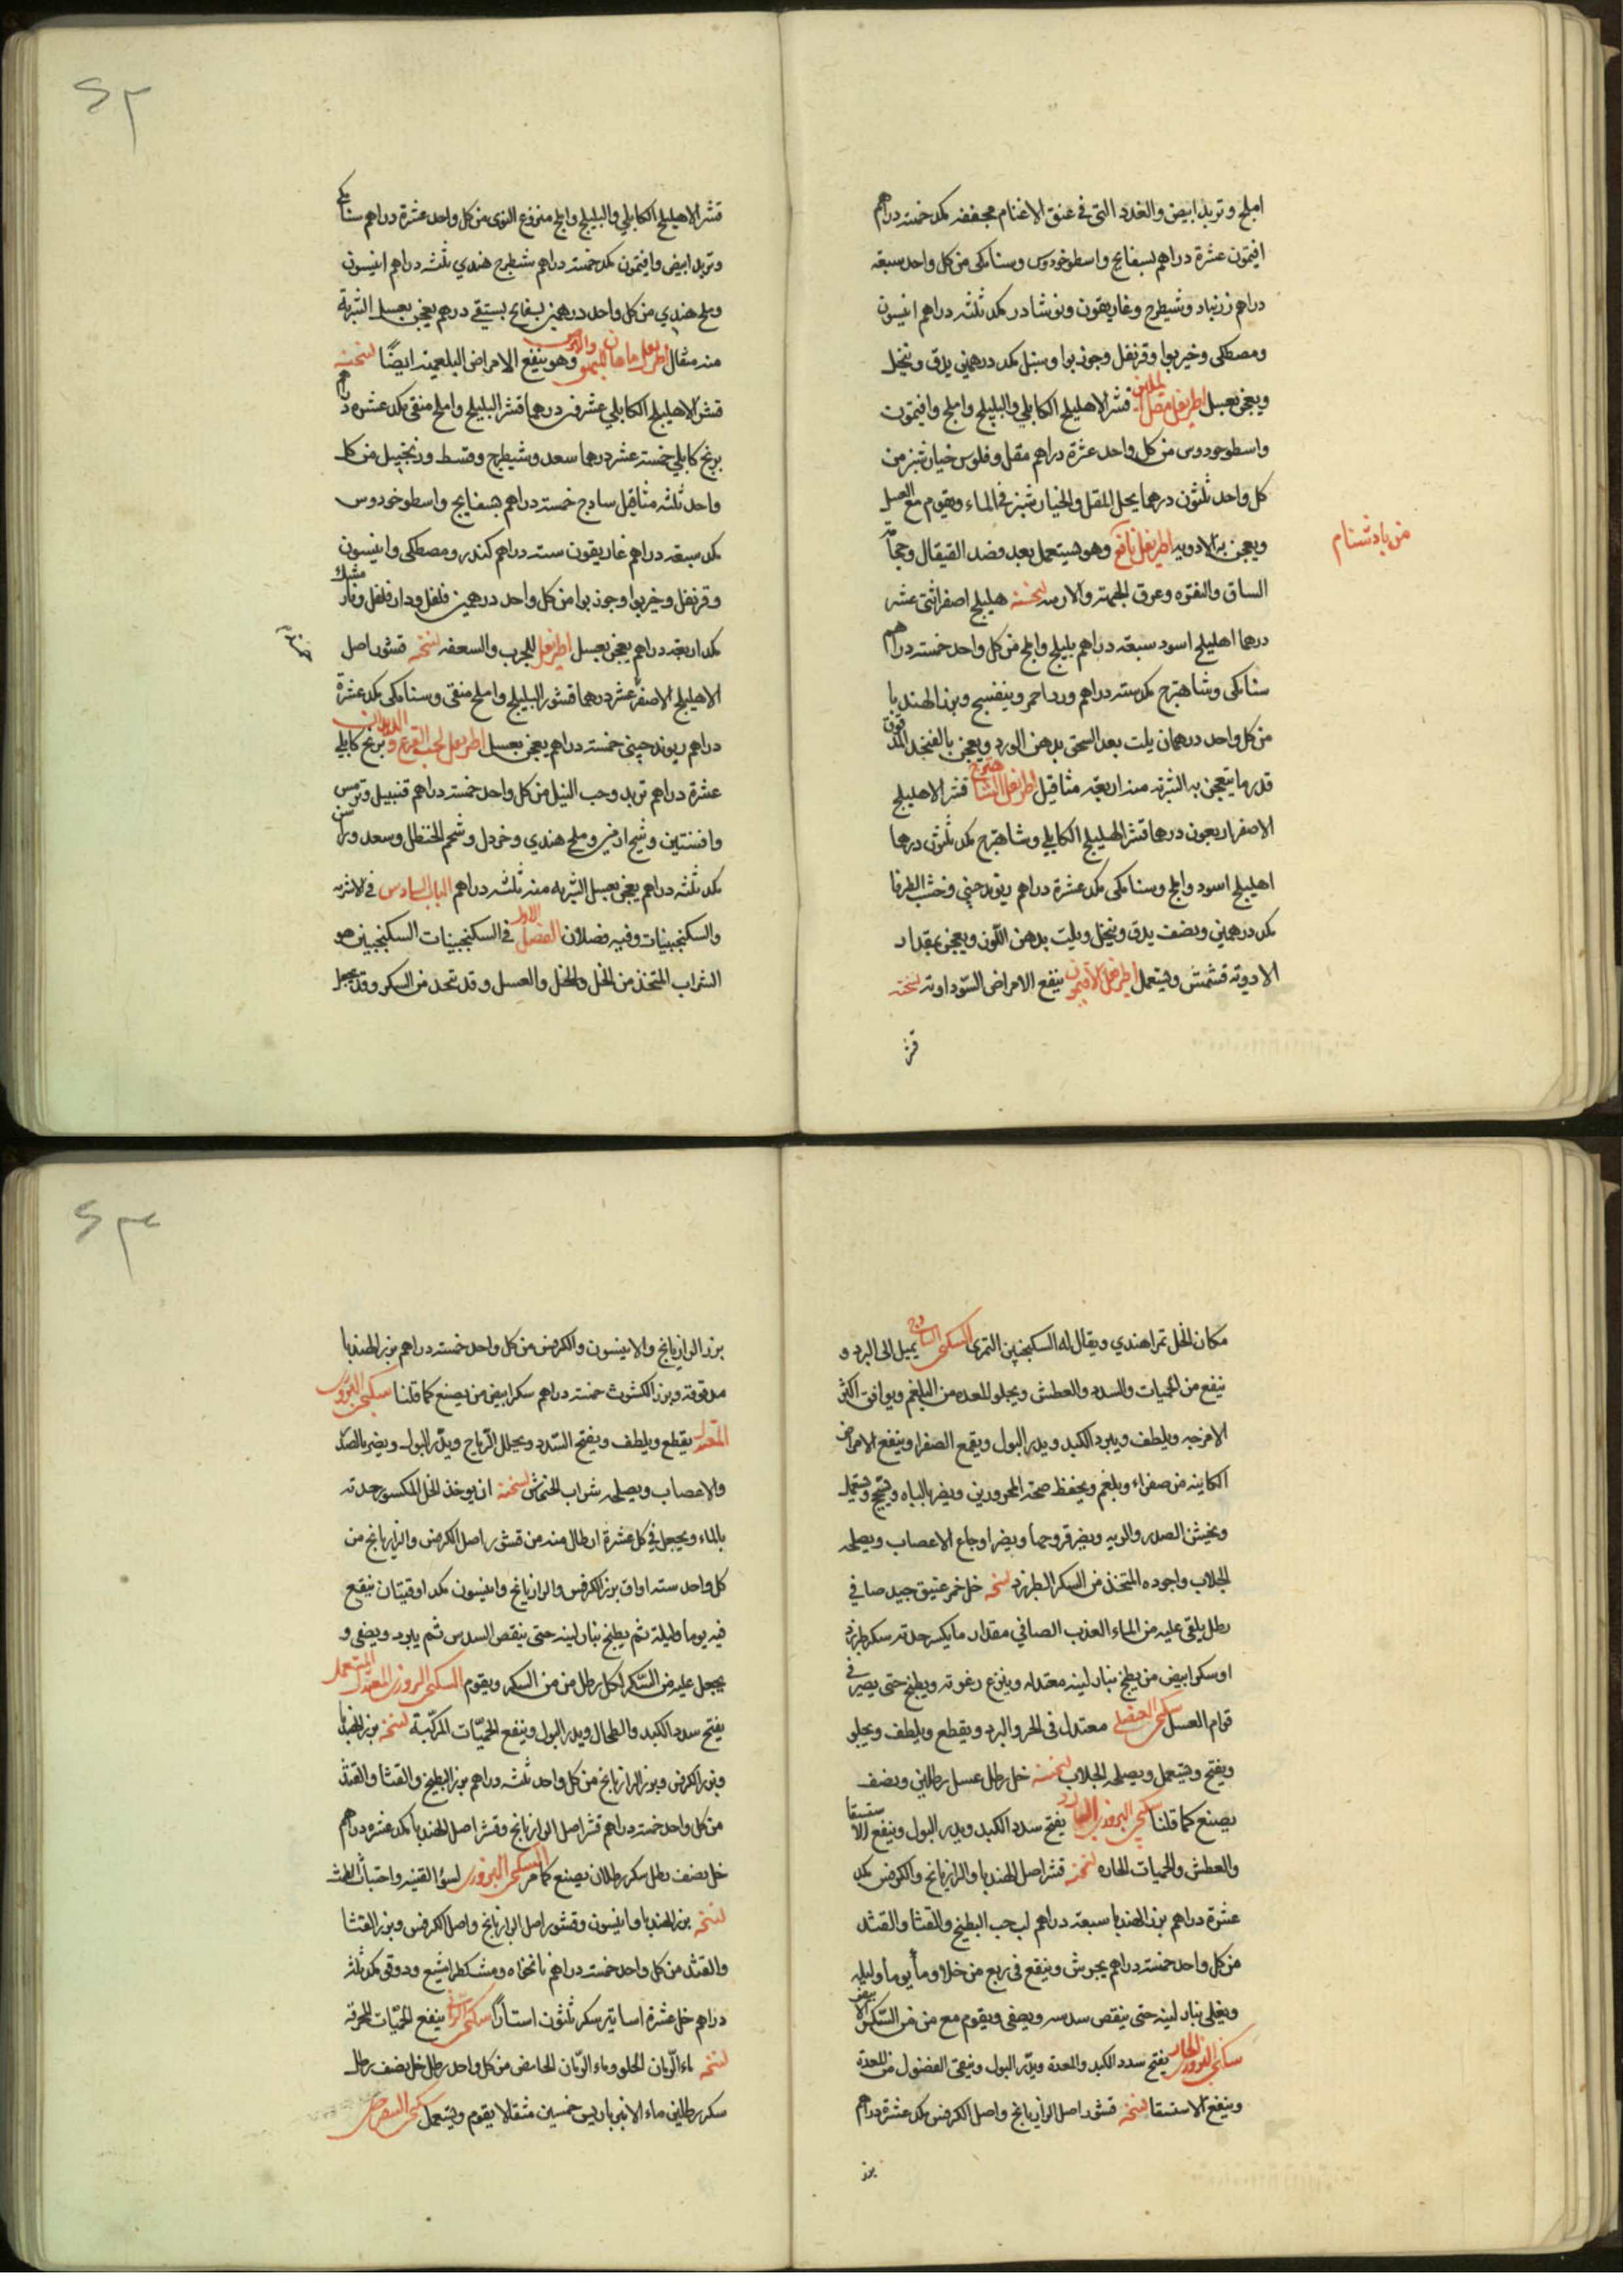 املج وتربد ابيض والغدد التى فى عنق الاغنام مجففه مكد خمسة دراهم
افتيمون عشرة دراهم بسفايج واسطوخودوس وسنامكى من كل واحد سبعة
دراهم زرنباد وشيطرج وغاريقون ونوشادر مكد ثلثه دراهم انيسون
ومصطكى وخيربوا وقرنفل وجوزبوا وسنبل مكد درهمين يدق وينخل
ويعجن بعسل اطريفل مقل الملين قشر الاهليلج الكابلي والبليلج واملج وافتيمون
واسطوخودوس من كل واحد عشرة دراهم مقل وفلوس خيارشنبر من
كل واحد ثلثون درهما يحل المقل والخيارشنبر فى الماء ويقوم مع العسل
ويعجن به الادويه اطريفل نافع وهو يستعمل بعد فصد القيفال وحجامة
من بادشنام
الساق والنقره وعرق الجبهة والارنبه نسخته هليلج اصفر اثنى عشر
درهما اهليلج اسود سبعة دراهم بليلج واملج من كل واحد خمسة دراهم
سنامكى وشاهترج مكد ستة دراهم ورد احمر وبنفسج وبزر الهندبا
من كل واحد درهمان يلت بعد السحق بدهن الورد ويعجن بالفنجد المدقوق
قدر ما يتعجن به الشربة منه اربعة مثاقيل اطريفل الشاهترج قشر الاهليلج
الاصفر اربعون درهما قشر الهليلج الكابلي وشاهترج مكد ثلثون درهما
اهليلج اسود واملج وسنامكى مكد عشرة دراهم ريوند چينى وخشب الطرفا
مكد درهمين ونصف يدق وينخل ويلت بدهن اللوز ويعجن بمقدار
الادوية قشمش ويستعمل اطريفل الافتيمون ينفع الامراض السوداوية نسخته
قشر
قشر الاهليلج الكابلي والبليلج واملج منزوع النوى من كل واحد عشرة دراهم سنامكى
وتربد ابيض وافتيمون مكد خمسة دراهم شيطرج هندي ثلثه دراهم انيسون
وملح هندي من كل واحد درهمين بسفايج بستقى درهم يعجن بعسل الشربة
منه مثقال وهو ينفع الامراض البلغميه ايضًا نسخته
قشر الاهليلج الكابلي عشرين درهما قشر البليلج واملج منقى مكد عشره دراهم
برنج كابلي خمسة عشر درهما سعد وشيطرج وقسط وزنجبيل من كل
واحد ثلثه مثاقيل سادج خمسة دراهم بسفايج واسطوخودوس
مكد سبعة دراهم غاريقون سته دراهم كندر ومصطكى وانيسون
وقرنفل وخيربوا وجوزبوا من كل واحد درهمين فلفل ودارفلفل ونارمشك
مكد اربعة دراهم يعجن بعسل اطريفل للجرب والسعفه نسخته قشور اصل
الاهليلج الاصفر عشر درهما قشور البليلج واملج منقى وسنامكى مكد عشرة
دراهم ريوند چينى خمسة دراهم يعجن بعسل اطريفل لحب القرع والديدان برنج كابلي
عشرة دراهم تربد وحب النيل من كل واحد خمسة دراهم قنبيل وترمس
وافسنتين وشيح ارمنى وملح هندي وخردل وشحم الحنظل وسعد وراسن
مكد ثلثه دراهم يعجن بعسل الشربه منه ثلثه دراهم الباب السادس فى الاشربه
والسكنجبينات وفيه فصلان الفصل الاول فى السكنجبينات السكنجبين هو
الشراب المتخذ من الخل والخل والعسل وقد تتخذ من السكر وقد يجعل
مكان الخل تمرا هندي ويقال له السكنجبين التمرى السكنجبين الساذج يميل الى البرد و
ينفع من الحميات والسدد والعطش ويجلو المعده من البلغم ويوافق اكثر
الامزجه ويلطف ويبرد الكبد ويدر البول ويقمع الصفرا وينفع الامراض
الكاينه من صفراء وبلغم ويحفظ صحة المحرورين ويضر بالباه
ويخشن الصدر والريه ويضر قروحها ويضر اوجاع الاعصاب ويصلحه
الجلاب واجوده المتخذ من السكر الطبرزد نسخه خل خمر عتيق جيد صافي
رطل يلقى عليه من الماء العذب الصافي مقدار ما يكسر حدته سكر طبرزد
او سكر ابيض من يطبخ بنار لينه معتدله وينزع رغوته ويطبخ حتى يصير فى
قوام العسل سكنجبين العنصلى معتدل فى الحر والبرد ويقطع ويلطف ويجلو
ويفتح ويستعمل ويصلحه الجلاب نسخته خل رطل عسل رطلين ونصف
يصنع كما قلنا سكنجبين البزورى البارد يفتح سدد الكبد ويدر البول وينفع الاستسقا
والعطش والحميات الحاره نسخته قشر اصل الهندبا والرازيانج والكرفس مكد
عشرة دراهم بزر الهندبا سبعة دراهم لب حب البطيخ والقثا والقثد
من كل واحد خمسة دراهم يجرش وينقع فى ربع من خلا وماء يوما وليله
ويغلى بنار لينه حتى ينقص سدسه ويصفى ويقوم مع من من السكر الابيض
سكنجبين البزور الحار يفتح سدد الكبد والمعدة ويدر البول وينقى الفضول من المعدة
وينفع الاستسقا نسخه قشور اصل الرازيانج واصل الكرفس مكد عشرة دراهم
بزر
بزر الرازيانج والانيسون والكرفس من كل واحد خمسة دراهم بزر الهندبا
مدقوقة وبزر الكشوث خمسة دراهم سكر ابيض من يصنع كما قلنا سكنجبين البزورى
المعتدل يقطع ويلطف ويفتح السدد ويحلل الرياح ويدر البول ويضر بالصدر
والاعصاب ويصلحه شراب الخشخاش نسخته ان يوخذ الخل المكسور حدته
بالماء ويجعل فى كل عشرة ارطال منه من قشور اصل الكرفس والرازيانج من
كل واحد سته اواق بزر الكرفس والرازيانج وانيسون مكد اوقيتان ينقع
فيه يوما وليلة ثم يطبخ بنار لينه حتى ينقص السدس ثم يبرد ويصفى و
يجعل عليه من السكر لكل رطل من من السكر ويقوم السكنجبين البزورى المعتدل المستعمل
يفتح سدد الكبد والطحال ويدر البول وينفع الحميّات المركّبة نسخته بزر الهندبا
وبزر الكرفس وبزر الرازيانج من كل واحد ثلثه دراهم بزر البطيخ والقثا والقثد
من كل واحد خمسة دراهم قشر اصل الرازيانج وقشر اصل الهندبا مكد عشره دراهم
خل نصف رطل سكر رطلان يصنع كما مر السكنجبين البزورى لسؤ القنيه واحتباس الطمث
نسخه بزر الهندبا وانيسون وقشور اصل الرازيانج واصل الكرفس وبزر القثا
والقثد من كل واحد خمسة دراهم نانخواه ومشكطرامشيع ودوقو مكد ثلثة
دراهم خل عشرة اساتير سكر ثلثون استارًا سكنجبين الرمانى ينفع الحميّات المحرقه
نسخه ماء الرّمان الحلو وماء الرّمان الحامض من كل واحد رطل خل نصف رطل
سكر رطلين ماء الانبرباريس خمسين مثقالا يقوم ويستعمل سكنجبين السفرجلى